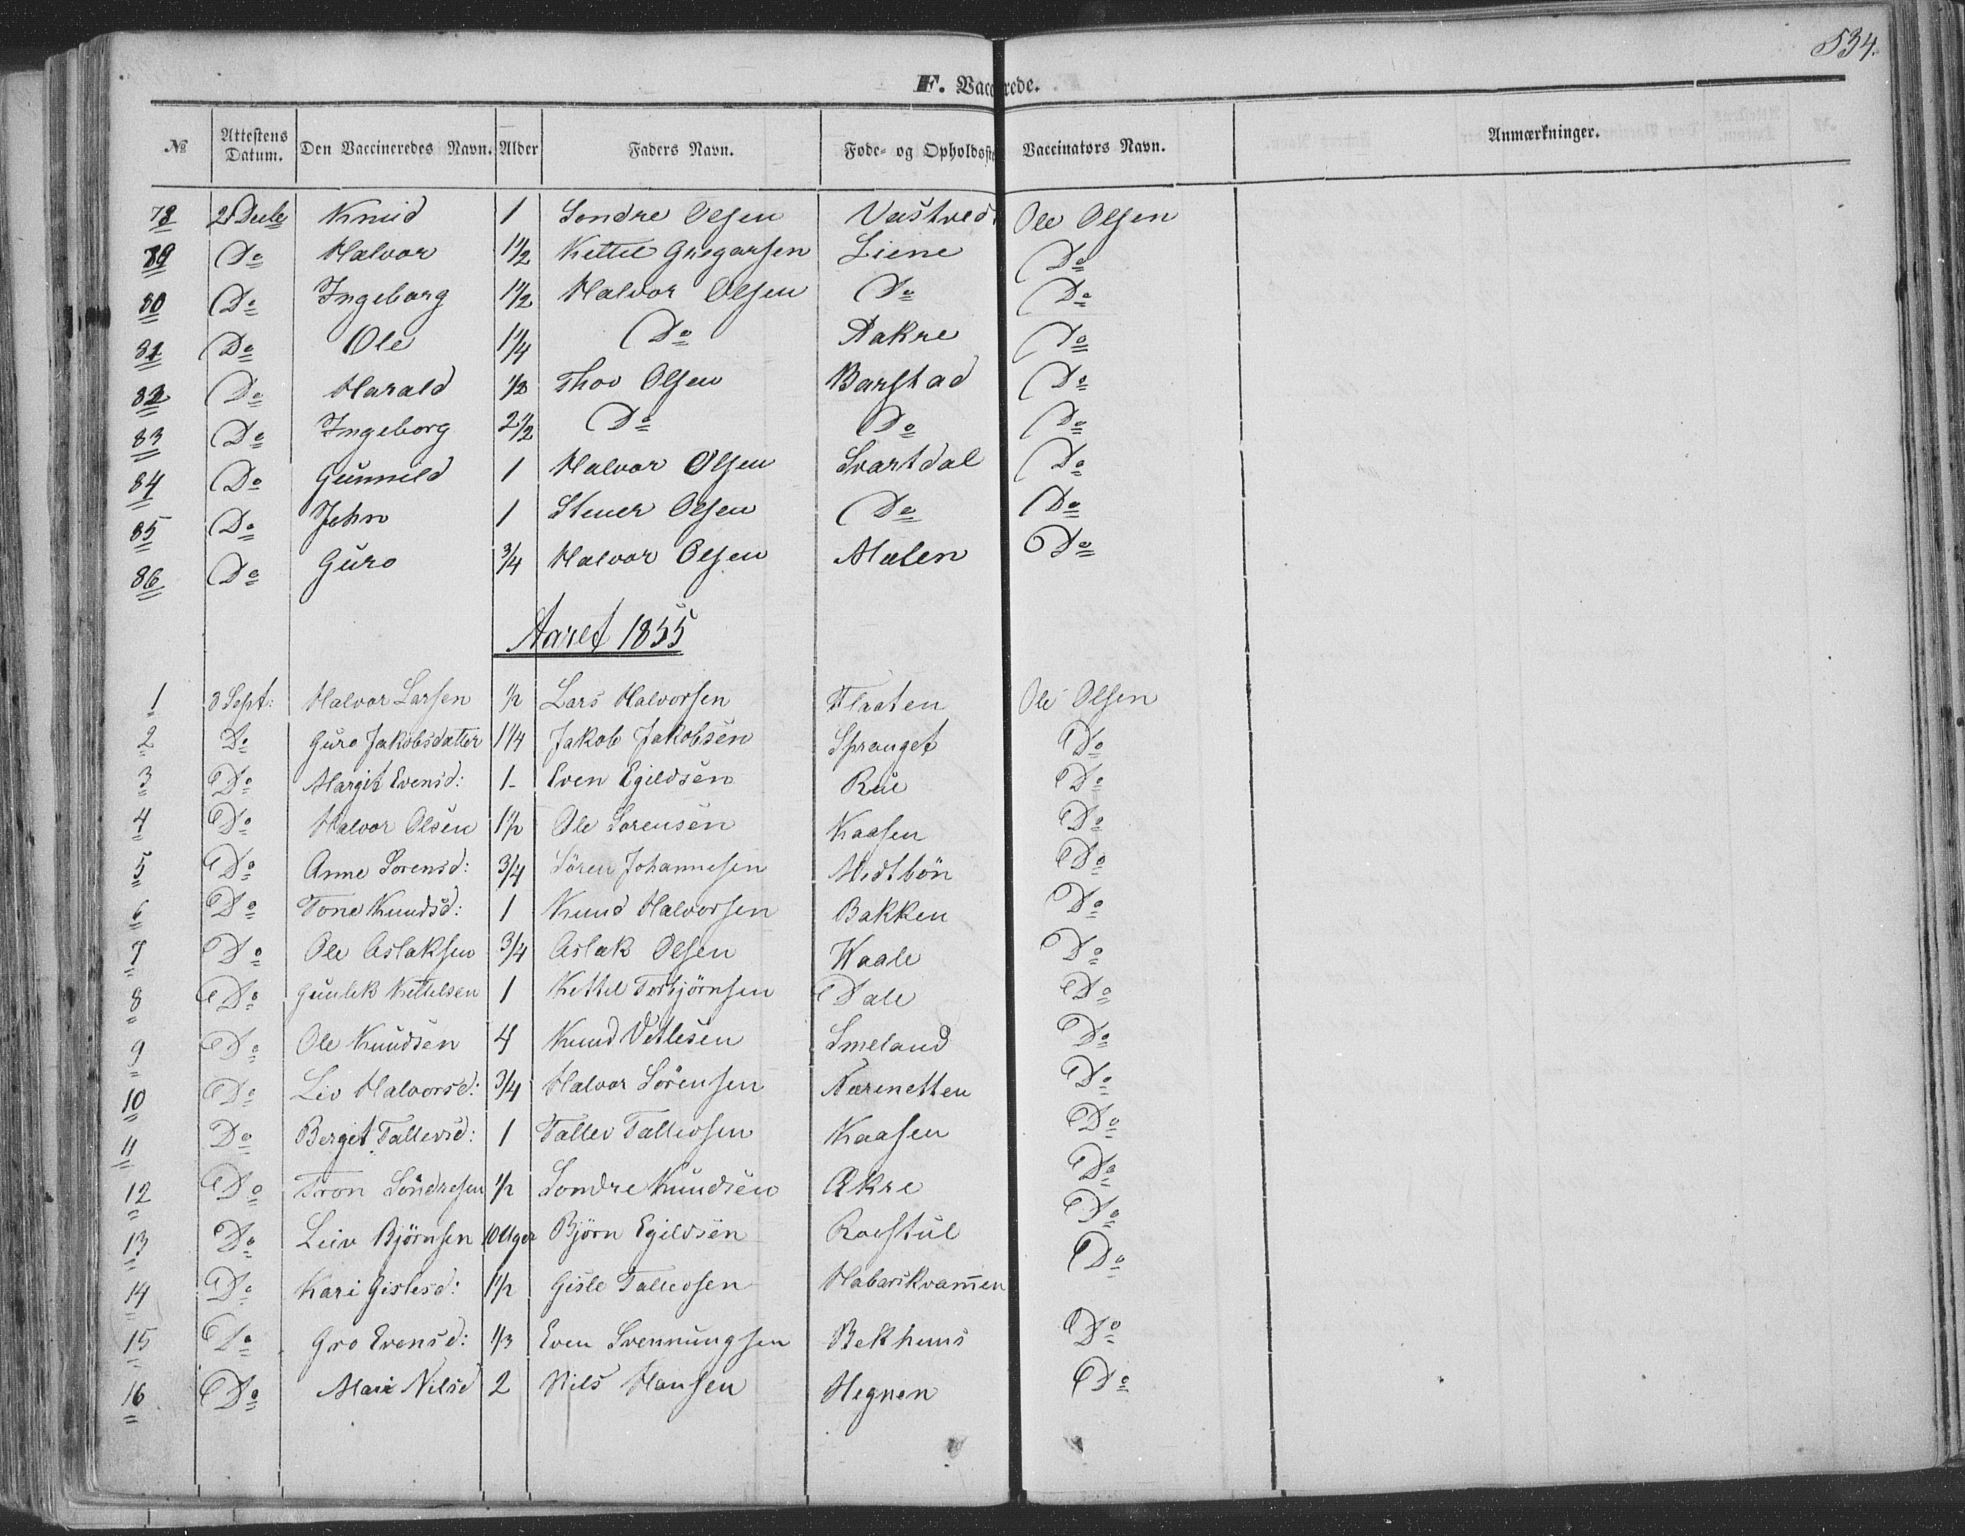 534.
F. Vaccinerede.
№ Attestens Datum. Den Vaccineredes Navn. Alder Faders Navn. Føde- og Opholdsste Vaccinators Navn. Anmærkninger.
78 2 Decbr Knud 1 Søndre Olsen Vastved Ole Olsen
79 Do Halvor 1 1/2 Kettel Gregarsen Liene Do
80 Do Ingeborg 1 1/2 Halvor Olsen Do Do
81 Do Ole 1 1/4 Do Aakre Do
82 Do Harald 1/2 Thov Olsen Barstad Do
83 Do Ingeborg 2 1/2 Do Do Do
84 Do Gunnild 1 Halvor Olsen Svartdal Do
85 Do John 1 Stener Olsen Do Do
86 Do Guro 3/4 Halvor Olsen Mælen Do
Aaret 1855
1 8 Sept: Halvor Larsen 1/2 Lars Halvorsen Flaaten Ole Olsen
2 Do Guro Jakobsdatter 1 1/4 Jakob Jakobsen Spranget Do
3 Do Margit Evensd: 1 Even Egildsen Rue Do
4 Do Halvor Olsen 1 1/2 Ole Sørensen Kaasen Do
5 Do Anne Sørensd: 3/4 Søren Johannesen Midtbön Do
6 Do Tone Knudsd: 1 Knud Halvorsen Bakken Do
7 Do Ole Aslaksen 3/4 Aslak Olsen Haale Do
8 Do Gunlek Kittelsen 1 Kettel Torbjørnsen Dale Do
9 Do Ole Knudsen 4 Knud Vetlesen Smeland Do
10 Do Liv Halvorsd: 3/4 Halvor Sørensen Nørenetten Do
11 Do Bergit Tallevsd: 1 Tallev Tallevsen Kaasen Do
12 Do Tron Søndresen 1/2 Søndre Knudsen Akre Do
13 Do Leiv Bjørnsen 10 Uger Bjørn Egildsen Roestul Do
14 Do Kari Gislesd: 1 1/2 Gisle Tallevsen Habarskvamen Do
15 Do Gro Evensd: 1/3 Even Svennungsen Bekhuus Do
16 Do Mari Nilsd 2 Nils Hansen Hegnen Do